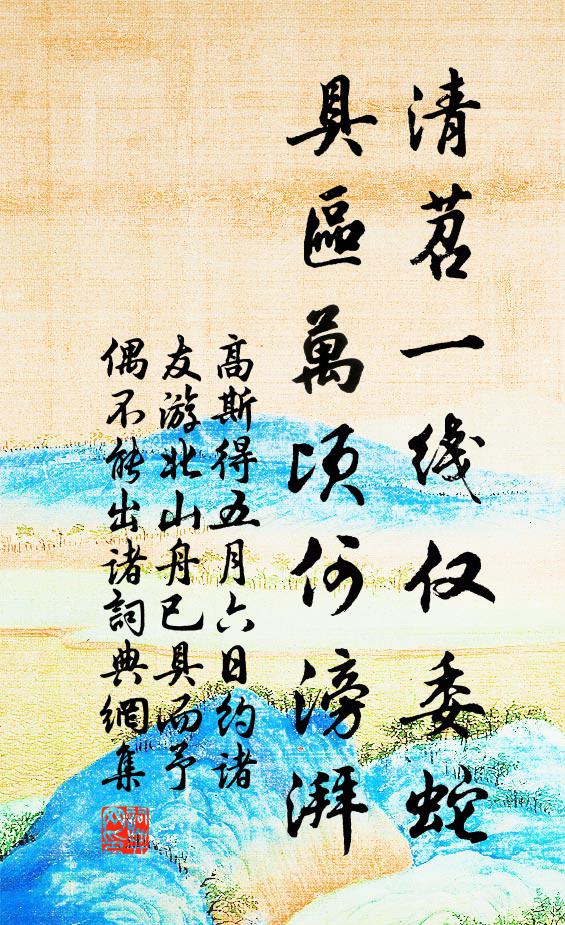 清苕一线仅委蛇
具區萬頃何滂湃
高斯得五月六日约诸
友游北山舟已具而予
偶不能出诸詞典網集